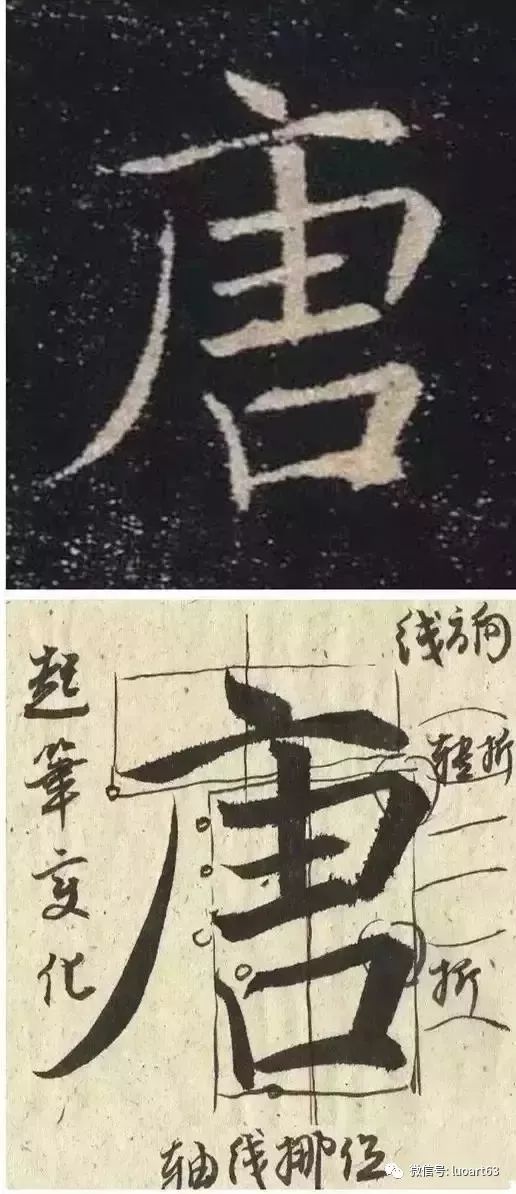 唐
线方向
起筆变化
唐
转折
折
轴线挪位
微信号: luoart63